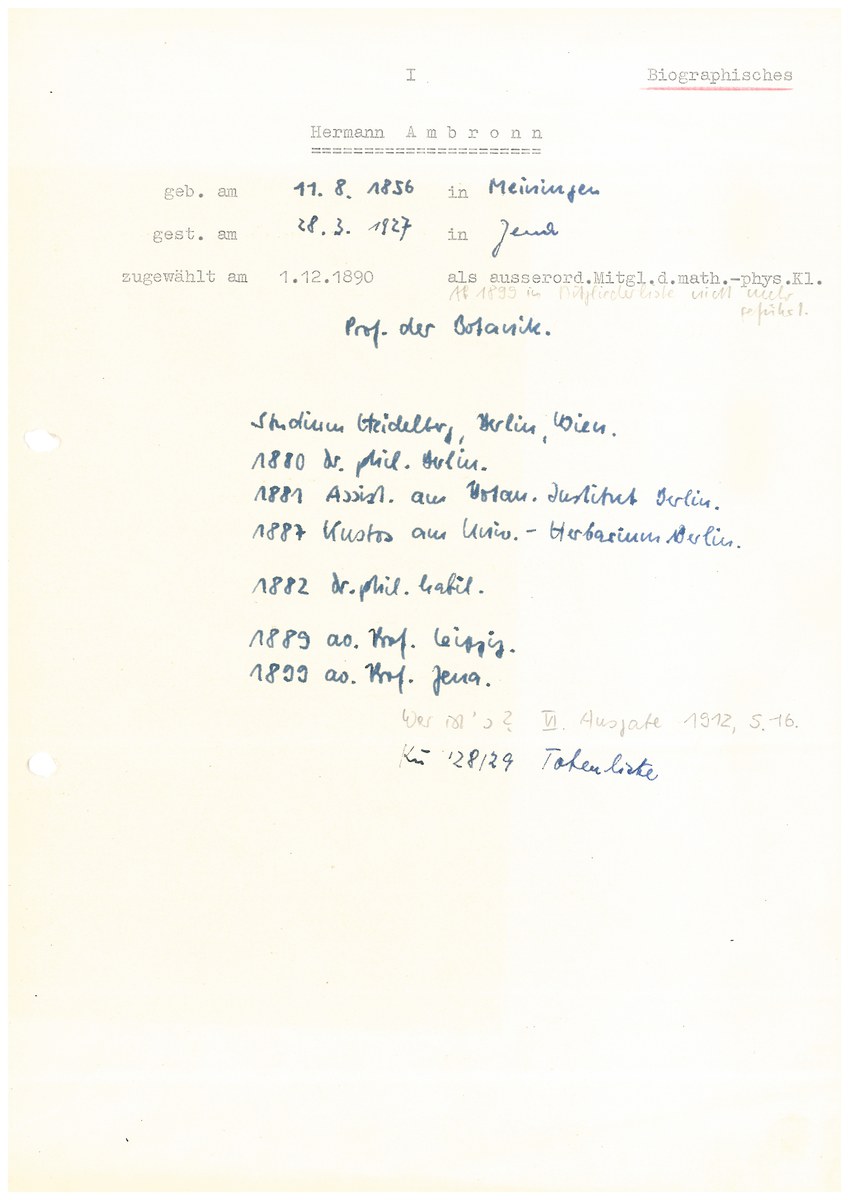 I
Biographisches
Hermann A m b r o n n
geb. am 11. 8. 1856 in Meiningen
gest. am 28. 3. 1927 in Jena
zugewählt am 1.12.1890 als ausserord.Mitgl.d.math.-phys.Kl.
Ab 1899 in Mitgliederliste nicht mehr
geführt.
Prof. der Botanik.
Studium Heidelberg, Berlin, Wien.
1880 Dr. phil. Berlin.
1881 Assist. am Botan. Institut Berlin.
1887 Kustos am Univ. - Herbarium Berlin.
1882 Dr. phil. habil.
1889 ao. Prof. Leipzig.
1899 ao. Prof. Jena.
Wer ist's? VI. Ausgabe 1912, S. 16.
Kü '28/29 Totenliste